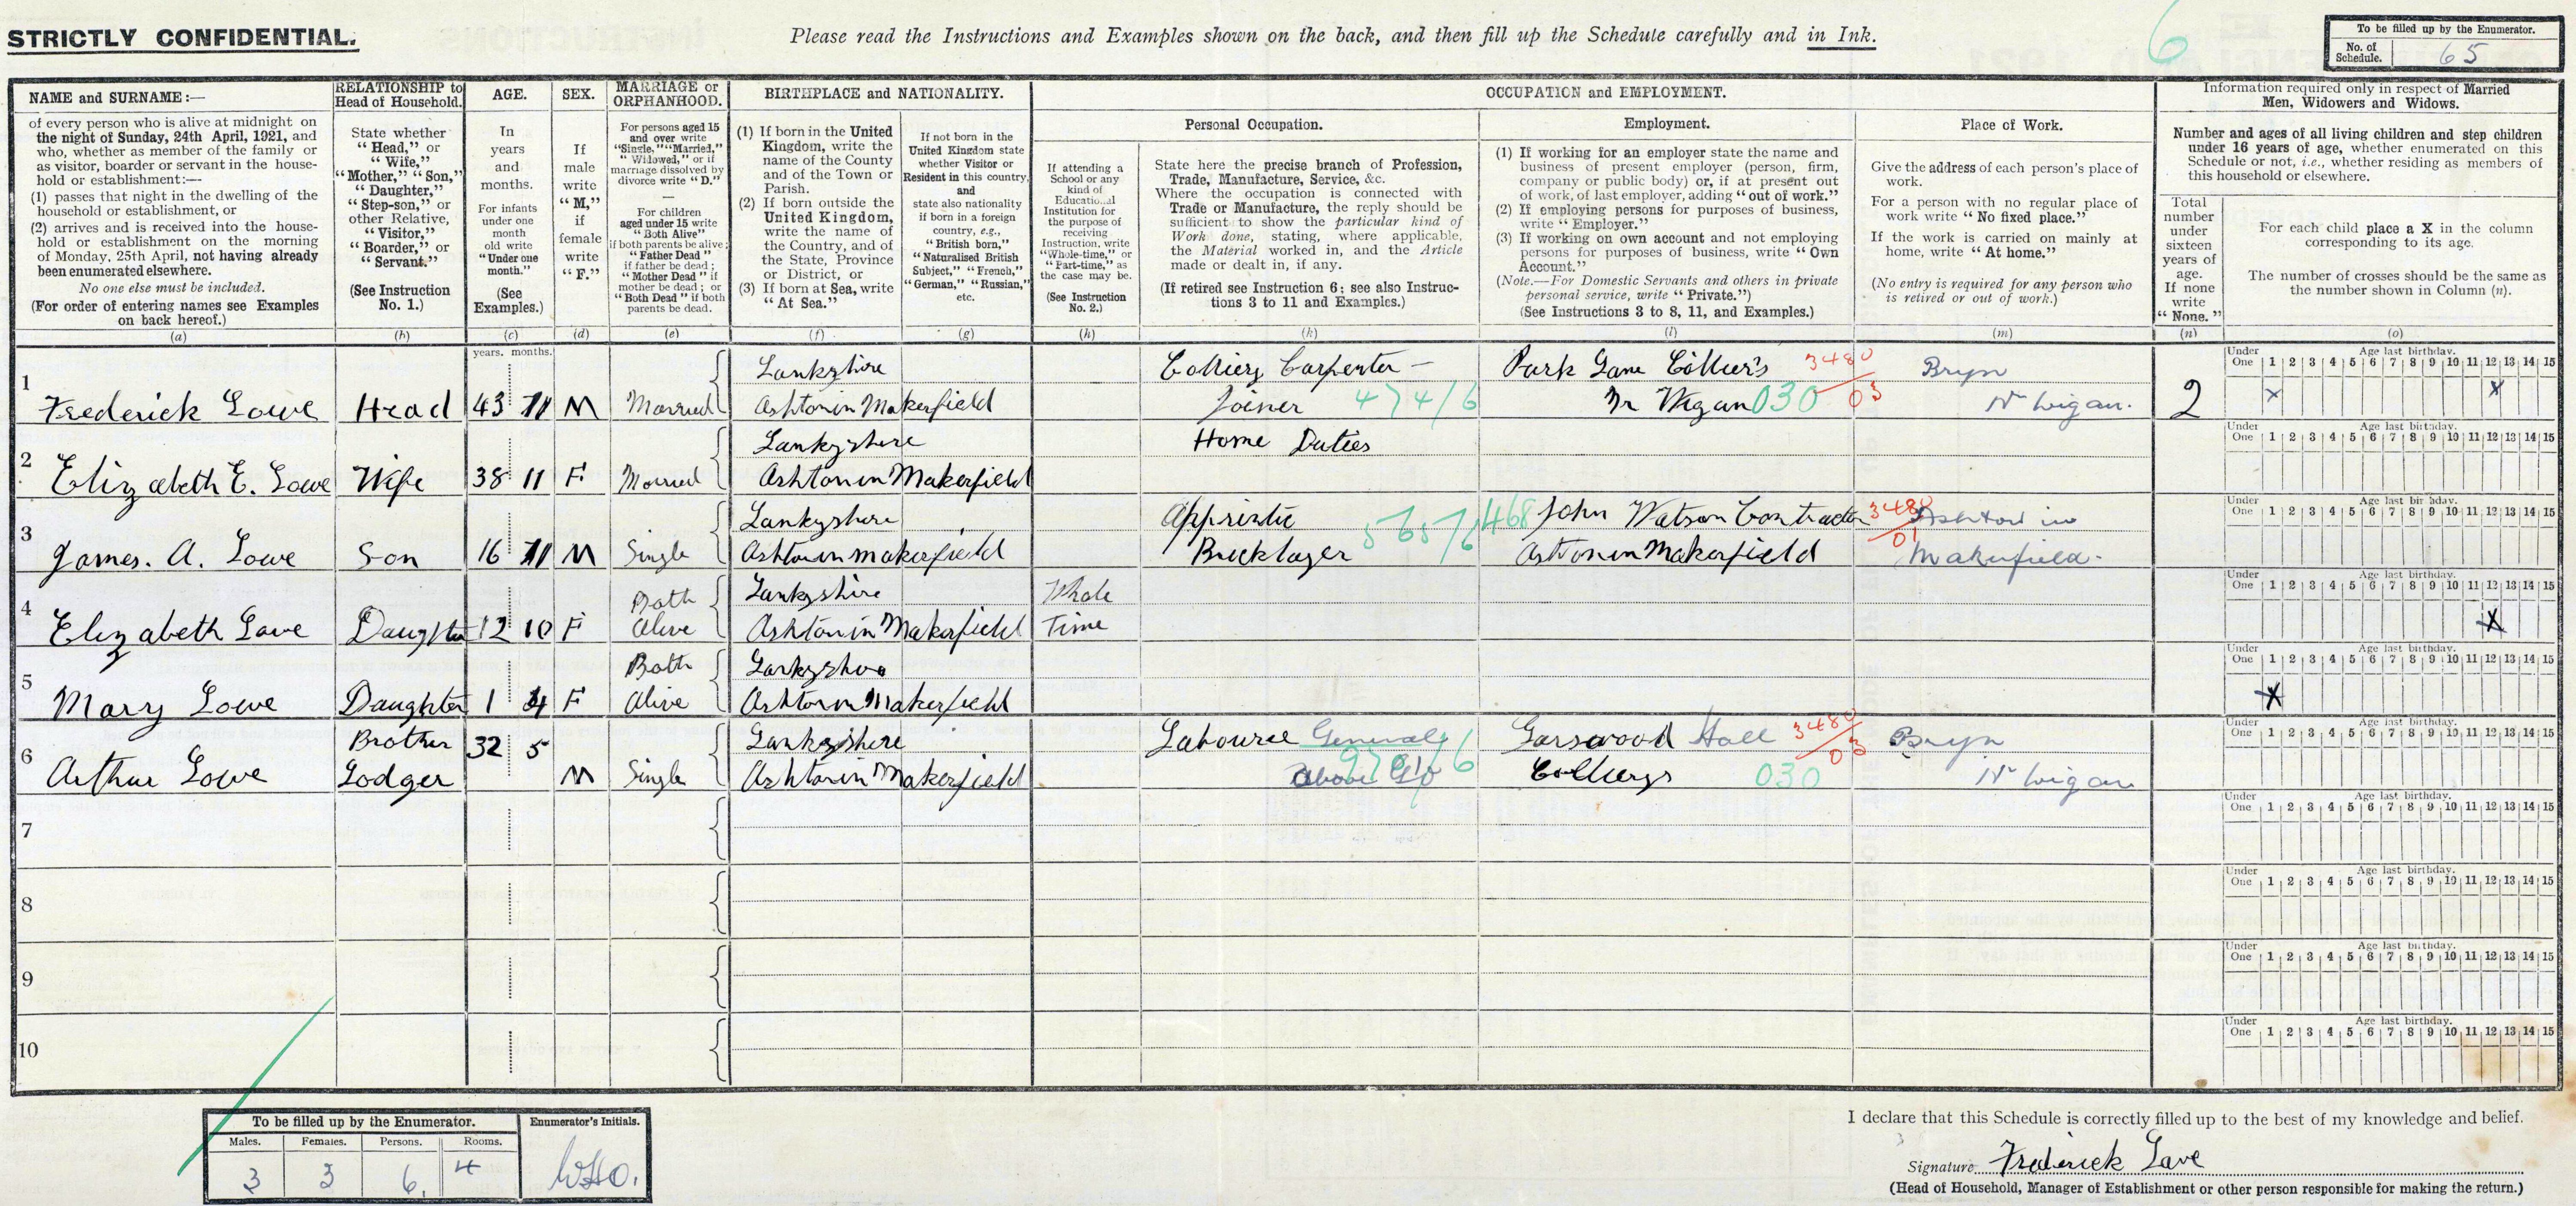 STRICTLY CONFIDENTIAL.
Please read the Instructions and Examples shown on the back, and then fill up the Schedule carefully and in Ink.
6
To be filled up by the Enumerator.
No. of Schedule. 65
NAME and SURNAME:—
of every person who is alive at midnight on
the night of Sunday, 24th April, 1921, and
who, whether as member of the family or
as visitor, boarder or servant in the house-
hold or establishment:—
(1) passes that night in the dwelling of the
household or establishment, or
(2) arrives and is received into the house-
hold or establishment on the morning
of Monday, 25th April, not having already
been enumerated elsewhere.
No one else must be included.
(For order of entering names see Examples
on back hereof.)
(a)
RELATIONSHIP to
Head of Household.
State whether
"Head," or
"Wife,"
"Mother," "Son,"
"Daughter,"
"Step-son," or
other Relative,
"Visitor,"
"Boarder," or
"Servant."
(See Instruction
No. 1.)
(b)
AGE.
In
years
and
months.
For infants
under one
month
old write
"Under one
month."
(See
Examples.)
(c)
SEX.
If
male
write
"M,"
if
female
write
"F."
(d)
MARRIAGE or
ORPHANHOOD.
For persons aged 15
and over write
"Single," "Married,"
"Widowed," or if
marriage dissolved by
divorce write "D."
—
For children
aged under 15 write
"Both Alive"
if both parents be alive;
"Father Dead"
if father be dead;
"Mother Dead" if
mother be dead; or
"Both Dead" if both
parents be dead.
(e)
BIRTHPLACE and NATIONALITY.
(1) If born in the United
Kingdom, write the
name of the County
and of the Town or
Parish.
(2) If born outside the
United Kingdom,
write the name of
the Country, and of
the State, Province
or District, or
(3) If born at Sea, write
"At Sea."
(f)
If not born in the
United Kingdom state
whether Visitor or
Resident in this country,
and
state also nationality
if born in a foreign
country, e.g.,
"British born,"
"Naturalised British
Subject," "French,"
"German," "Russian,"
etc.
(g)
OCCUPATION and EMPLOYMENT.
Personal Occupation.
If attending a
School or any
kind of
Educational
Institution for
the purpose of
receiving
Instruction, write
"Whole-time," or
"Part-time," as
the case may be.
(See Instruction
No. 2.)
(h)
State here the precise branch of Profession,
Trade, Manufacture, Service, &c.
Where the occupation is connected with
Trade or Manufacture, the reply should be
sufficient to show the particular kind of
Work done, stating, where applicable,
the Material worked in, and the Article
made or dealt in, if any.
(If retired see Instruction 6; see also Instruc-
tions 3 to 11 and Examples.)
(k)
Employment.
(1) If working for an employer state the name and
business of present employer (person, firm,
company or public body) or, if at present out
of work, of last employer, adding "out of work."
(2) If employing persons for purposes of business,
write "Employer."
(3) If working on own account and not employing
persons for purposes of business, write "Own
Account."
(Note.—For Domestic Servants and others in private
personal service, write "Private.")
(See Instructions 3 to 8, 11, and Examples.)
(l)
Place of Work.
Give the address of each person's place of
work.
For a person with no regular place of
work write "No fixed place."
If the work is carried on mainly at
home, write "At home."
(No entry is required for any person who
is retired or out of work.)
(m)
Information required only in respect of Married
Men, Widowers and Widows.
Number and ages of all living children and step children
under 16 years of age, whether enumerated on this
Schedule or not, i.e., whether residing as members of
this household or elsewhere.
Total
number
under
sixteen
years of
age.
If none
write
"None."
(n)
For each child place a X in the column
corresponding to its age.
The number of crosses should be the same as
the number shown in Column (n).
(o)
years. months.
Under Age last birthday.
One 1 2 3 4 5 6 7 8 9 10 11 12 13 14 15
1 Lankyshire Colliery Carpenter — Park Lane Collier's 3480 Bryn
Frederick Lowe Head 43 11 M Married Ashton in Makerfield Joiner 474/6 Nr Wigan 030 03 Nr Wigan. 2 x x
Under Age last birthday.
One 1 2 3 4 5 6 7 8 9 10 11 12 13 14 15
2 Lankyshire Home Duties
Elizabeth E. Lowe Wife 38 11 F Married Ashton in Makerfield
Under Age last birthday.
One 1 2 3 4 5 6 7 8 9 10 11 12 13 14 15
3 Lankyshire Apprintic 565/6 468 John Watson Contractor 3480 Ashton in
James. A. Lowe Son 16 11 M Single Ashton in makerfield Bricklayer Ashton in Makerfield 01 Makerfield.
Under Age last birthday.
One 1 2 3 4 5 6 7 8 9 10 11 12 13 14 15
4 Both Lankyshire Whole
Elizabeth Lowe Daughter 12 10 F Alive Ashton in Makerfield Time X
Under Age last birthday.
One 1 2 3 4 5 6 7 8 9 10 11 12 13 14 15
5 Both Lankyshire
Mary Lowe Daughter 1 4 F Alive Ashton in Makerfield X
Under Age last birthday.
One 1 2 3 4 5 6 7 8 9 10 11 12 13 14 15
6 Brother 32 5 Lankyshire Labourer General Garswood Hall 3480 Bryn
Arthur Lowe Lodger M Single Ashton in Makerfield above 970/6 Collierys 030 03 Nr Wigan
Under Age last birthday.
One 1 2 3 4 5 6 7 8 9 10 11 12 13 14 15
7
Under Age last birthday.
One 1 2 3 4 5 6 7 8 9 10 11 12 13 14 15
8
Under Age last birthday.
One 1 2 3 4 5 6 7 8 9 10 11 12 13 14 15
9
Under Age last birthday.
One 1 2 3 4 5 6 7 8 9 10 11 12 13 14 15
10
To be filled up by the Enumerator.
Males. Females. Persons. Rooms.
3 3 6. 4
Enumerator's Initials.
I declare that this Schedule is correctly filled up to the best of my knowledge and belief.
Signature Frederick Lowe
(Head of Household, Manager of Establishment or other person responsible for making the return.)